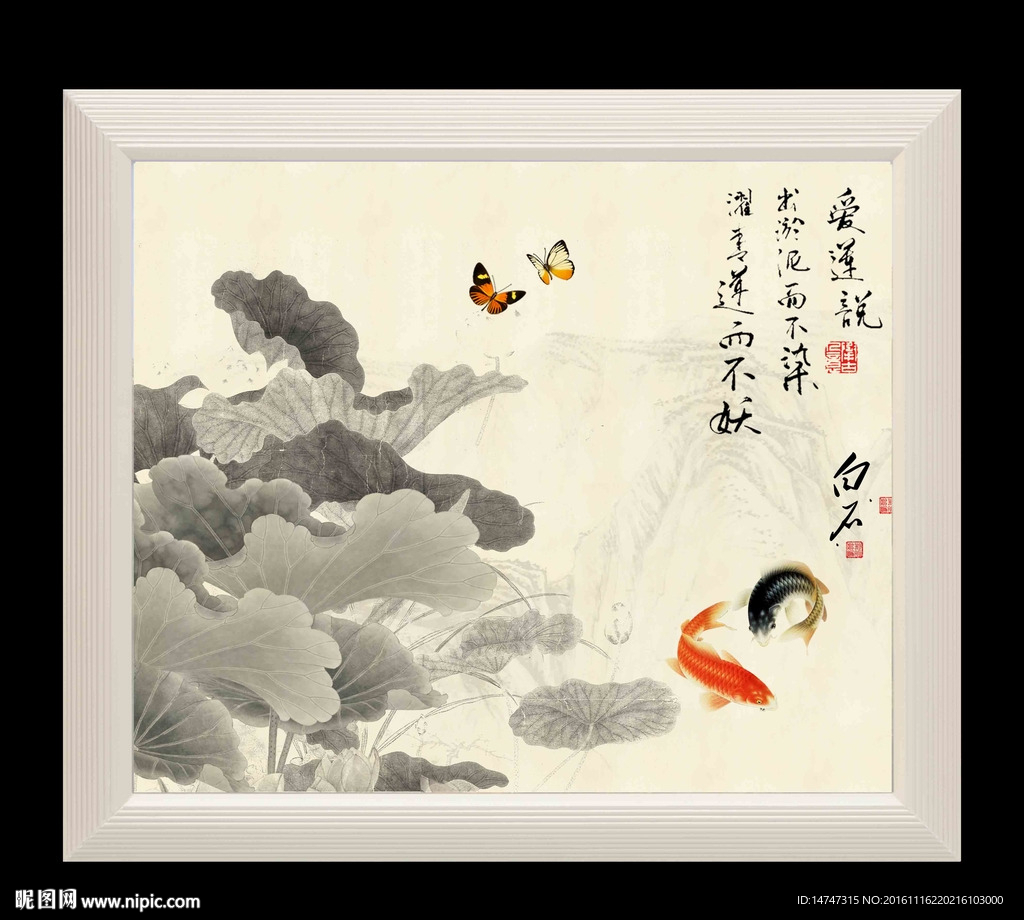 愛蓮說
出淤泥而不染
濯青蓮而不妖
白石
昵图网 www.nipic.com
ID:14747315 NO:20161116220216103000